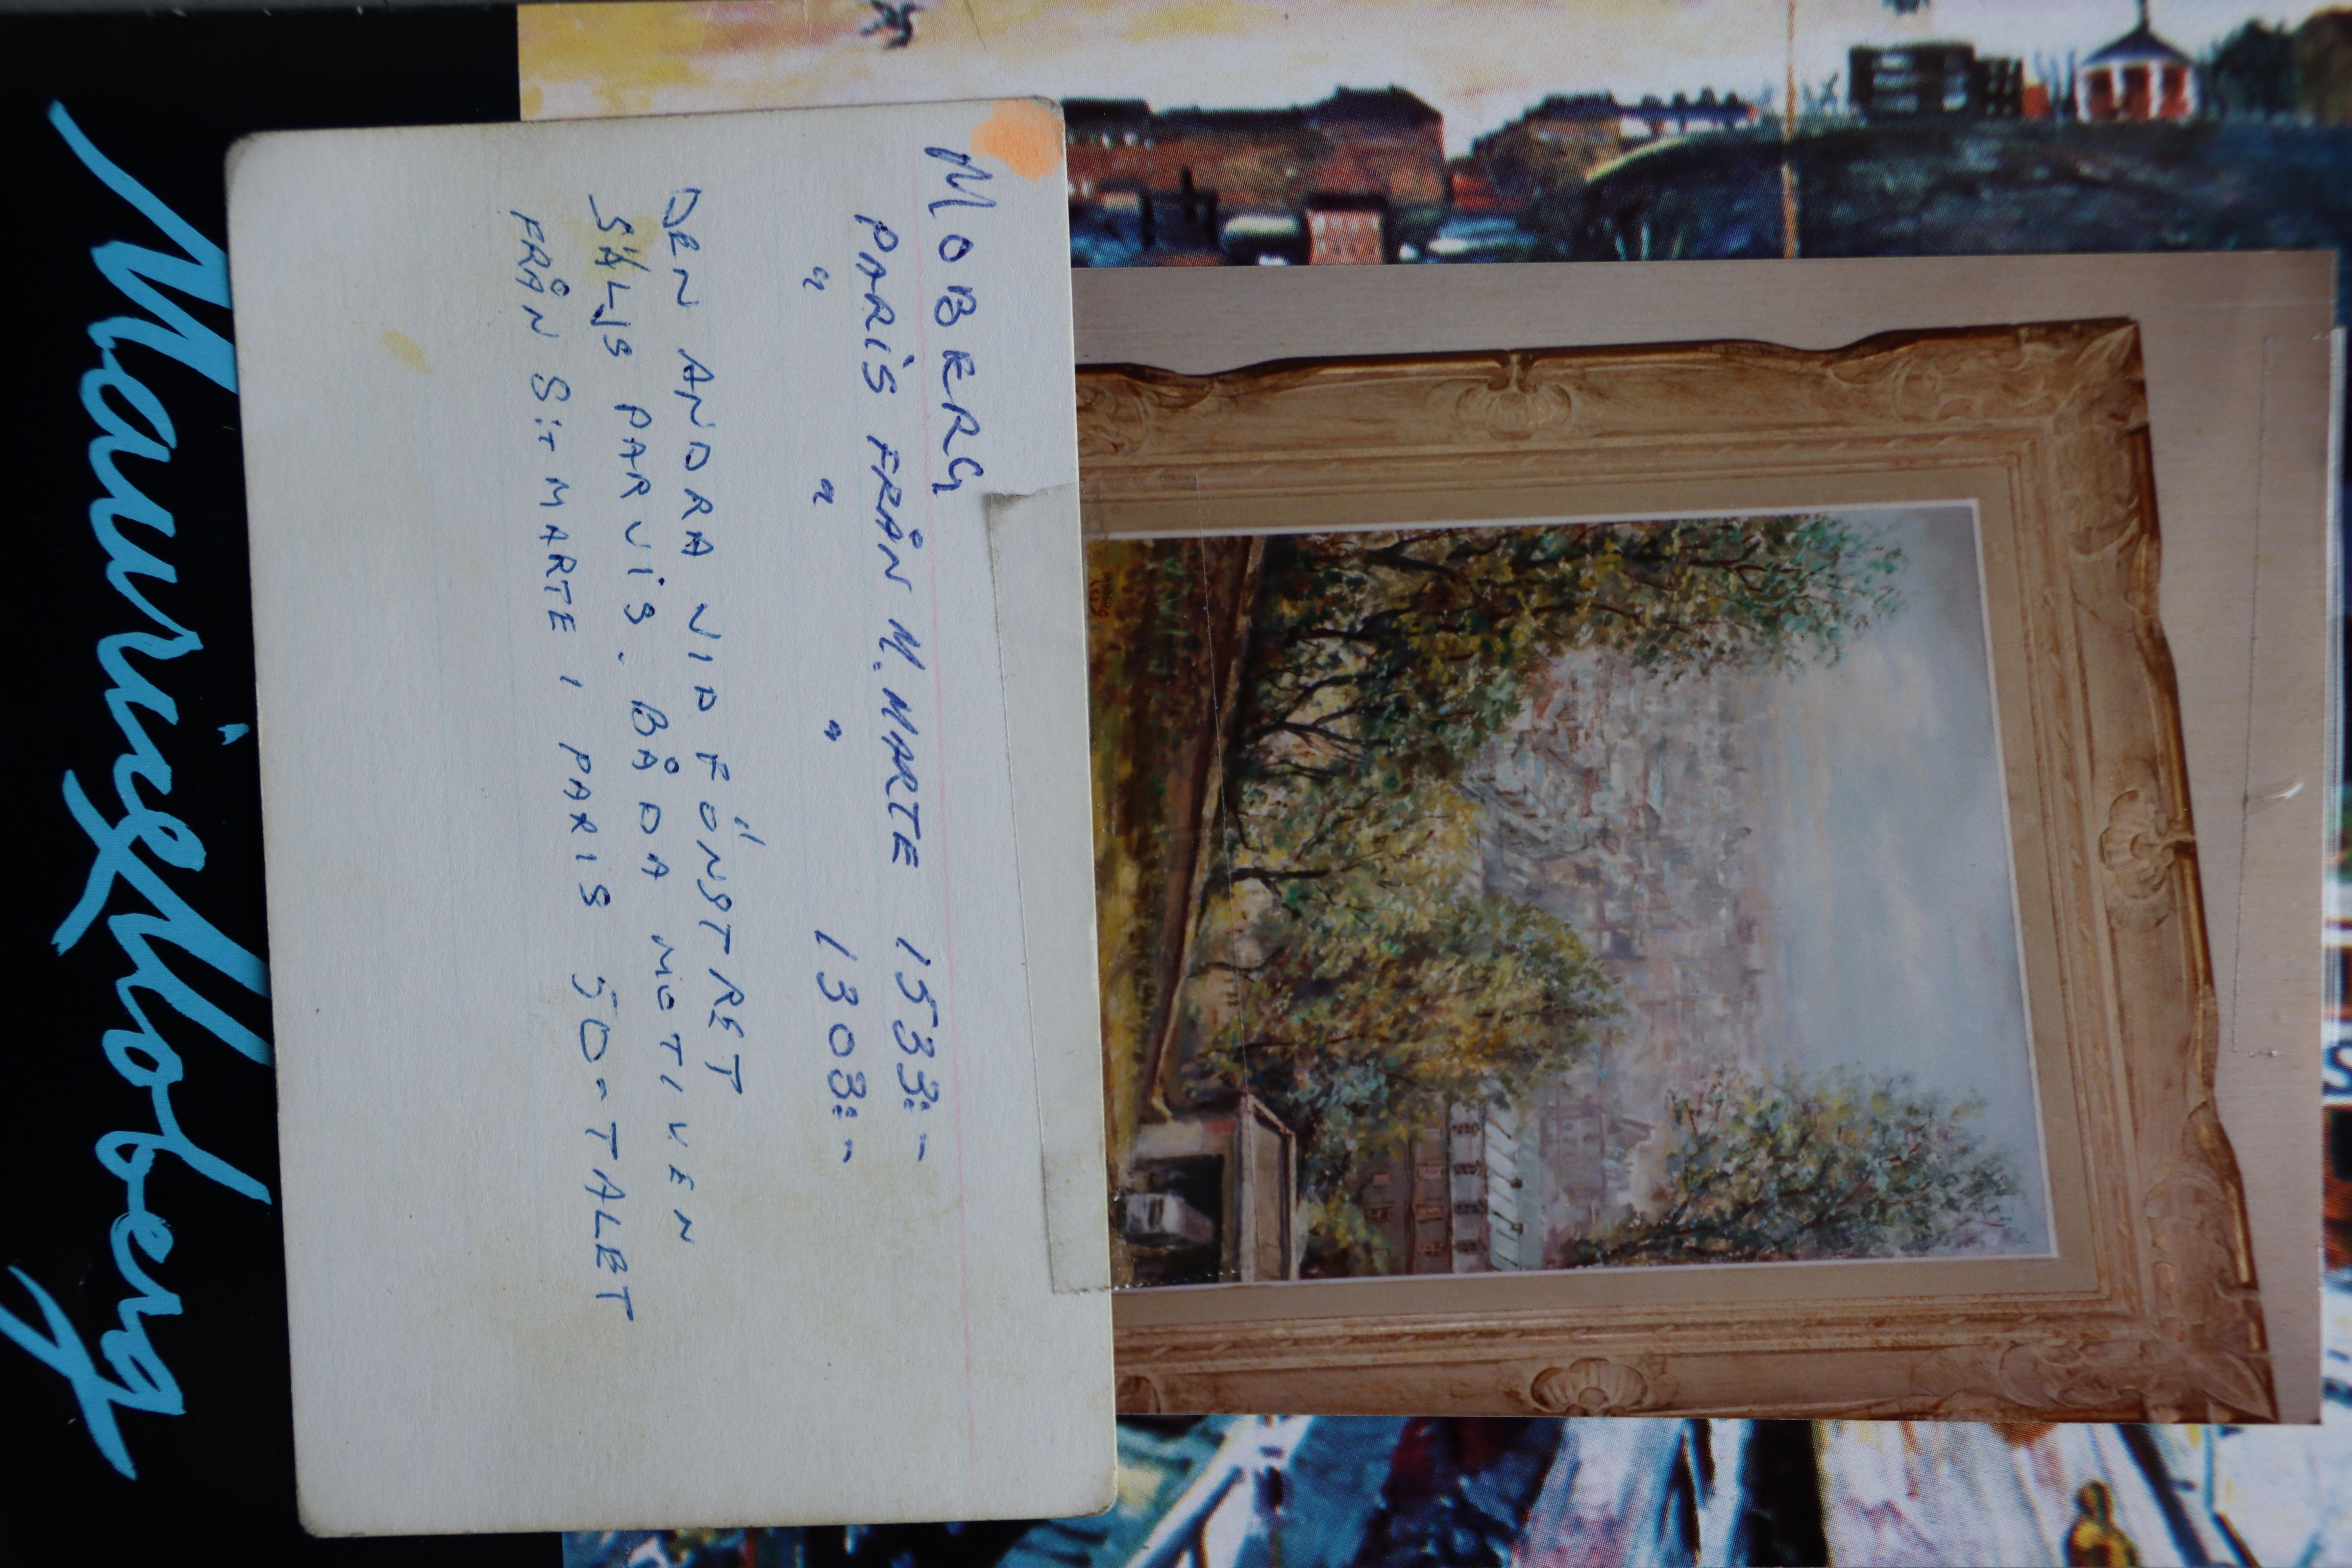 MOBERG
PARIS FRÅN M.MARTE 1533:-
" " " 1303:-
DEN ANDRA VID FÖNSTRET
SÄLJS PARVIS. BÅDA MOTIVEN
FRÅN S:T MARTE I PARIS 50-TALET
Mauritz Moberg